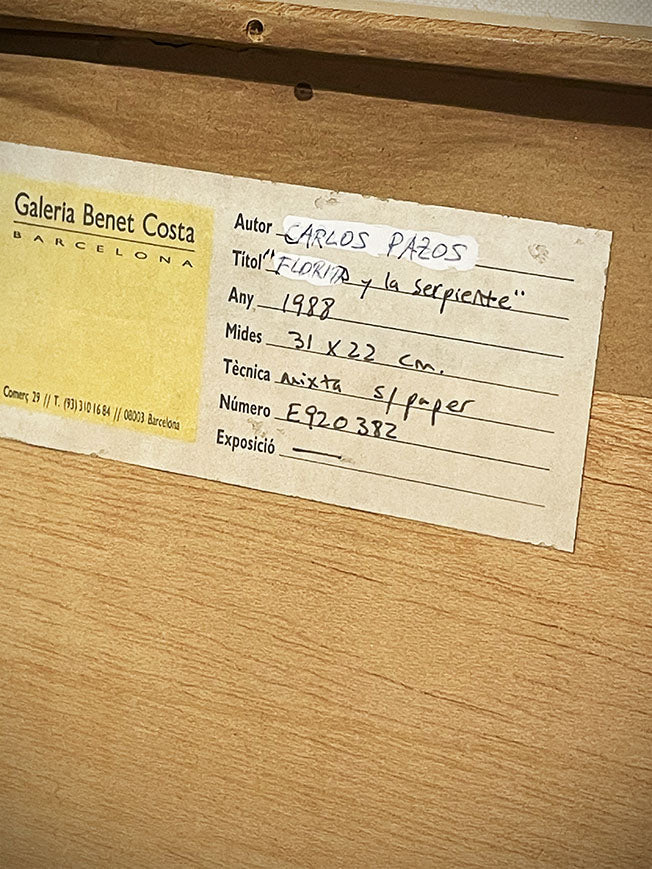 Galeria Benet Costa
BARCELONA
Comerç 29 // T. (93) 310 16 84 // 08003 Barcelona
Autor CARLOS PAZOS
Títol "FLORITA y la serpiente"
Any 1988
Mides 31 x 22 cm.
Tècnica mixta s/paper
Número E920382
Exposició —